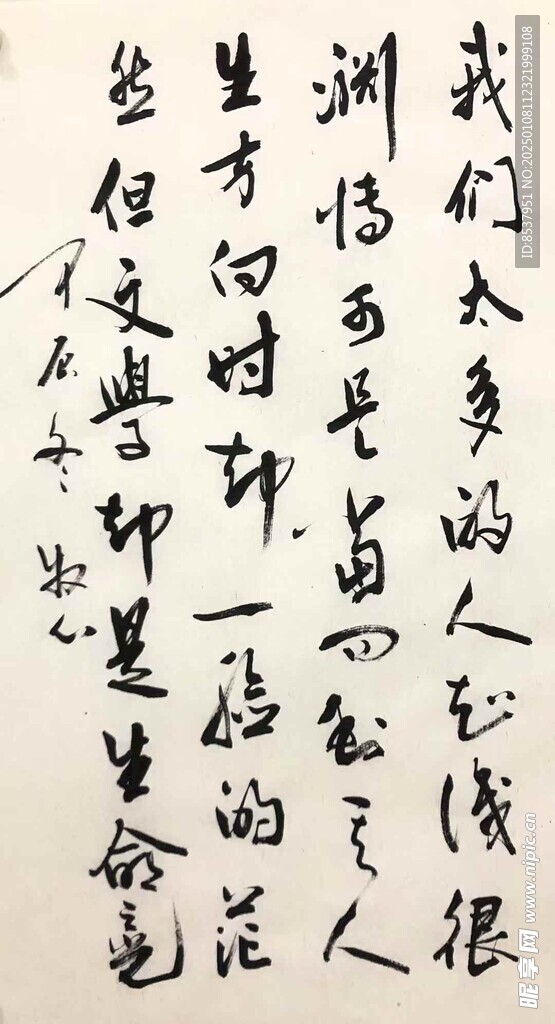 我们太多的人知识很
渊博可是当问到其人
生方向时却一脸的茫
然但文學却是生命亮
甲辰冬 牧心
ID:8537951 NO:20250108112321999108
昵享网 www.nipic.cn